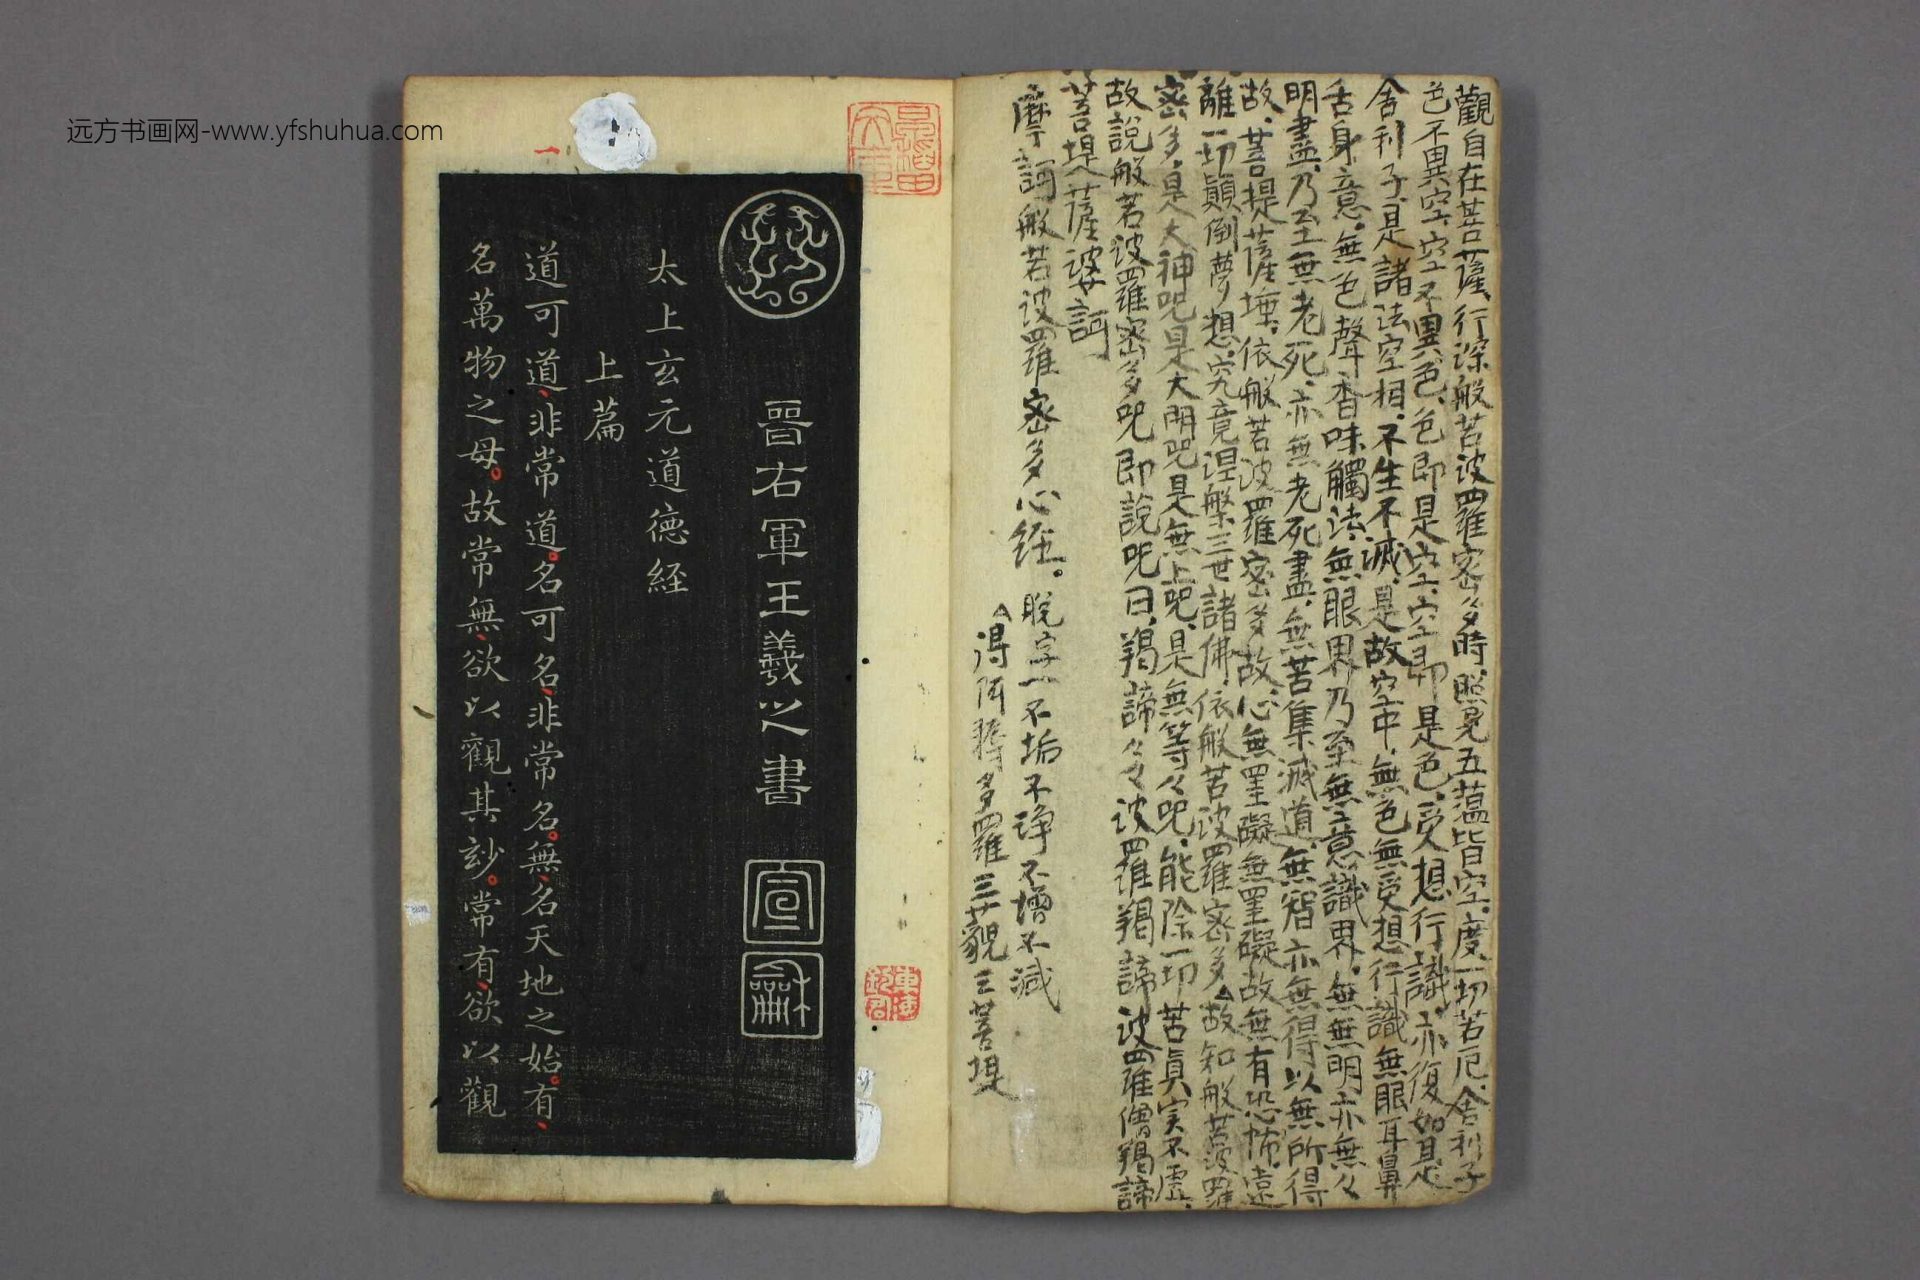 远方书画网-www.yfshuhua.com
觀自在菩薩、行深般若波羅密多時、照見五蘊皆空、度一切苦厄、舍利子
色不異空、空不異色、色即是空、空即是色、受想行識、亦復如是
舍利子、是諸法空相、不生不滅、是故空中、無色無受想行識無眼耳鼻
舌身意、無色聲香味觸法、無眼界乃至無意識界、無無明亦無々
明盡、乃至無老死、亦無老死盡、無苦集滅道、無智亦無得以無所得
故、菩提薩埵、依般若波羅密多故、心無罣礙無罣礙故無有恐怖、遠
離一切顛倒夢想、究竟涅槃、三世諸佛、依般若波羅密多、△故知般若波羅
密多、是大神呪是大明呪是無上呪、是無等々呪、能除一切苦真実不虛、
故說般若波羅密多呪即說呪曰、羯諦々々波羅羯諦波羅僧羯諦
菩提薩婆訶
摩訶般若波羅密多心経。
脫字一不垢不淨不增不減
△得阿耨多羅三藐三菩提
晉右軍王羲之書
宣
龢
太上玄元道德経
上篇
道可道、非常道。名可名、非常名。無、名天地之始。有、
名萬物之母。故常無、欲以觀其玅。常有、欲以觀
一